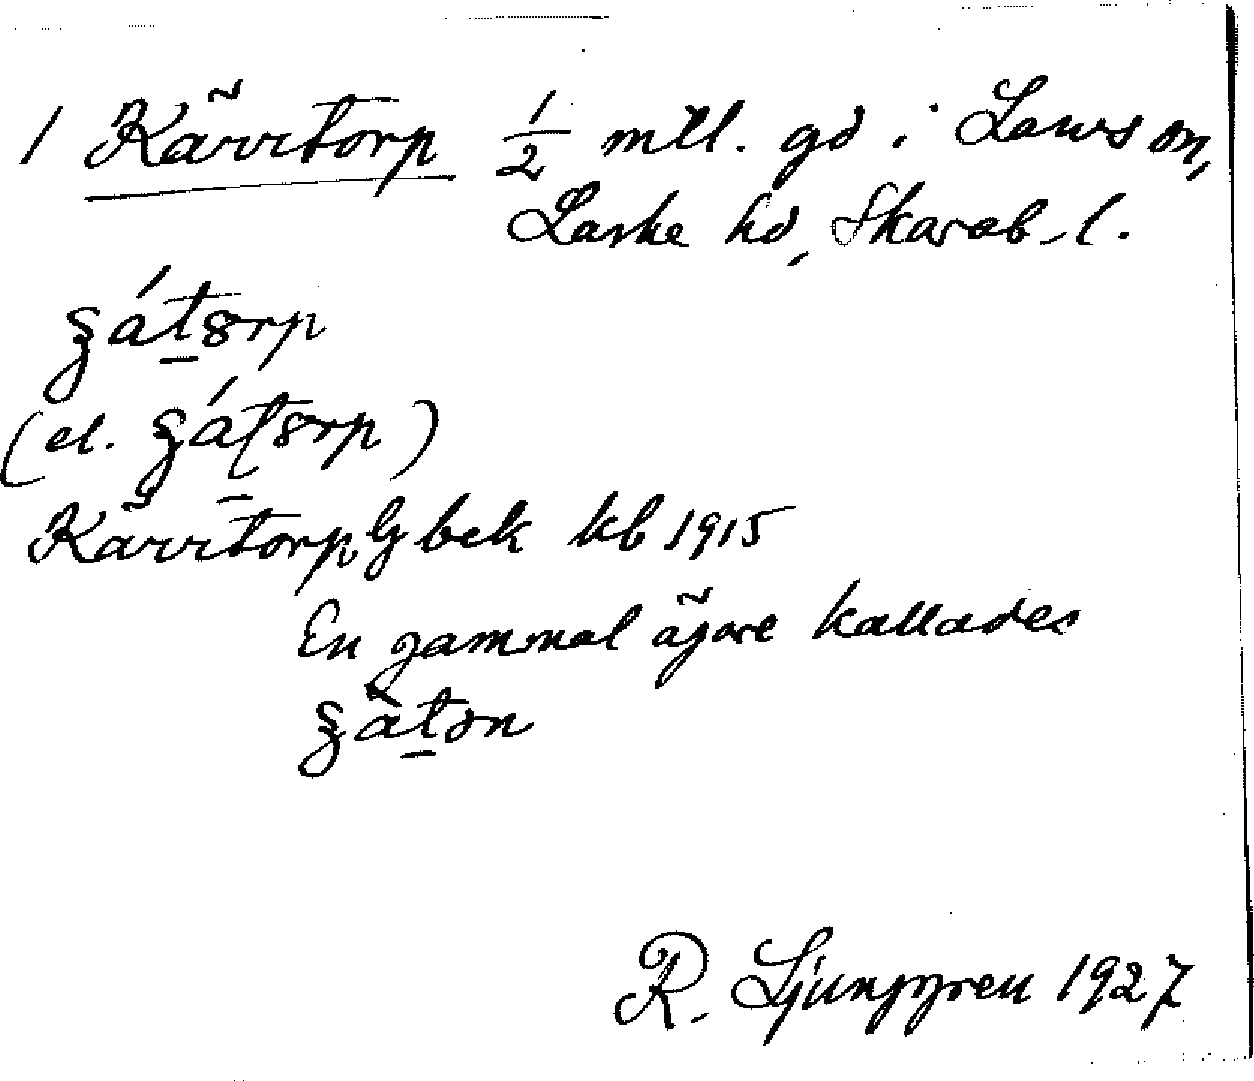 1 Kärrtorp 1/2 mtl. gd i Lawson,
Laske hd, Skarab.l.
ʓátṣrp
(el. ʓátṣrp)
Kärrtorp Ljbek kb 1915
En gammal äjare kallades
ʓàton
R. Ljunggren 1927